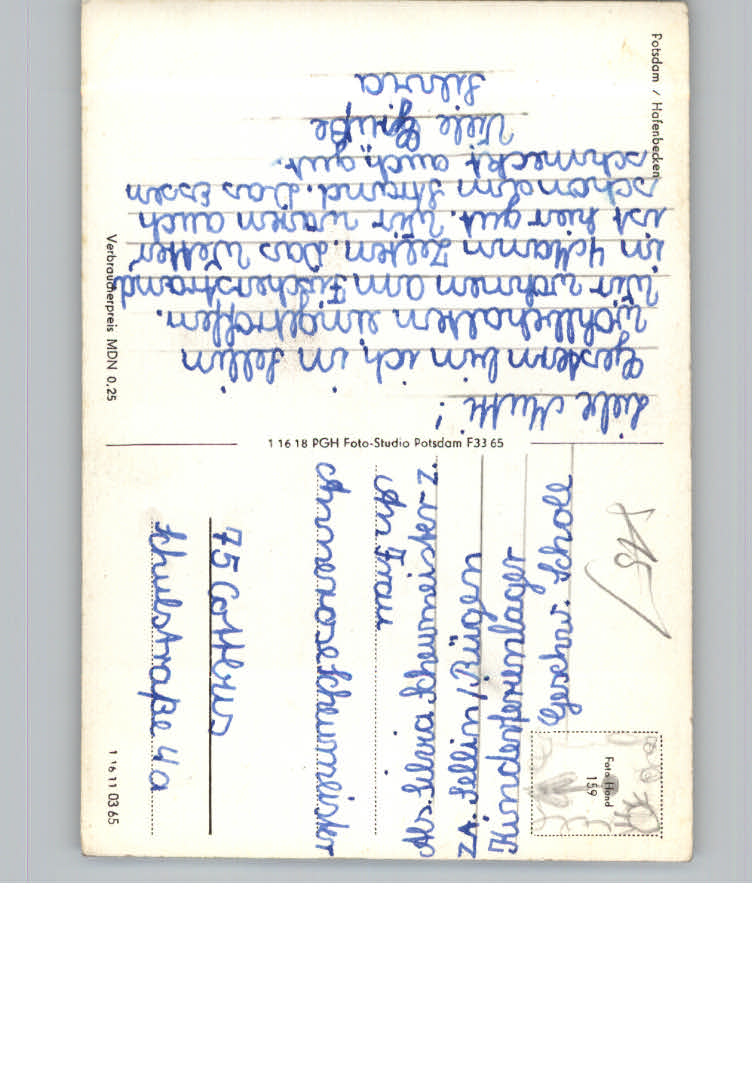 Potsdam / Hafenbecken
Liebe Mutti!
Gestern bin ich in Sellin
wohlbehalten eingetroffen.
Wir wohnen am Fischerstrand
in 4 Mann Zelten. Das Wetter
ist hier gut. Wir waren auch
schon am Strand. Das Essen
schmeckt auch gut.
Viele Grüße
Silvia
Verbraucherpreis MDN 0,25
1 16 18 PGH Foto-Studio Potsdam F33 65
Geschw. Scholl
Kinderferienlager
ZA. Sellin/Rügen
Abs. Silvia Scheumeister z.
An Frau
Annerose Scheumeister
75 Cottbus
Schulstraße 4a
Foto Hand
159
1 16 11 03 65